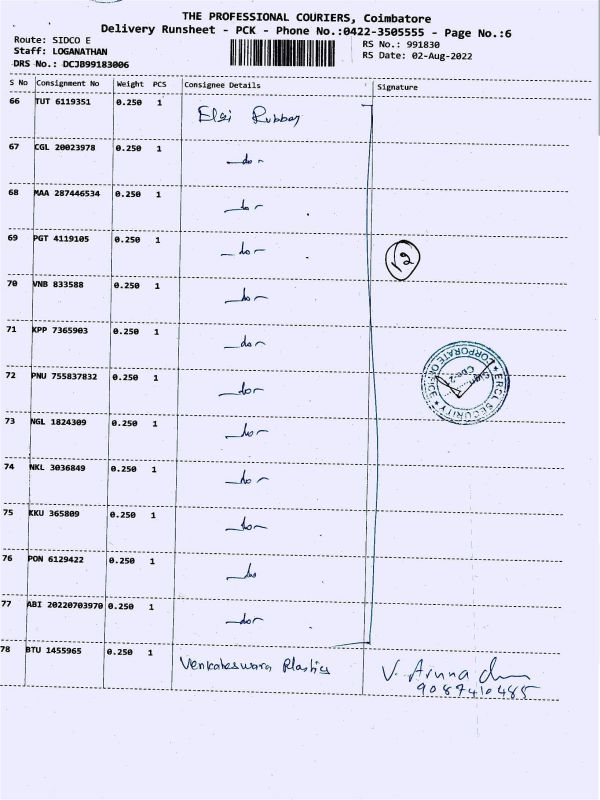 THE PROFESSIONAL COURIERS, Coimbatore
Delivery Runsheet - PCK - Phone No.:0422-3505555 - Page No.:6
Route: SIDCO E
RS No.: 991830
Staff: LOGANATHAN
RS Date: 02-Aug-2022
DRS No.: DCJB99183006
S No Consignment No Weight PCS Consignee Details Signature
66 TUT 6119351 0.250 1 Elgi Rubber
67 CGL 20023978 0.250 1 -do-
68 MAA 287446534 0.250 1 -do-
69 PGT 4119105 0.250 1 -do-
12
70 VNB 833588 0.250 1 -do-
71 KPP 7365903 0.250 1 -do-
72 PNU 755837832 0.250 1 -do-
ERCL SECURITY
CORPORATE OFFICE
Sign
73 NGL 1824309 0.250 1 -do-
74 NKL 3036849 0.250 1 -do-
75 KKU 365809 0.250 1 -do-
76 PON 6129422 0.250 1 -do
77 ABI 20220703970 0.250 1 -do-
78 BTU 1455965 0.250 1 Venkateswara Plastics V. Aruna
9087410485